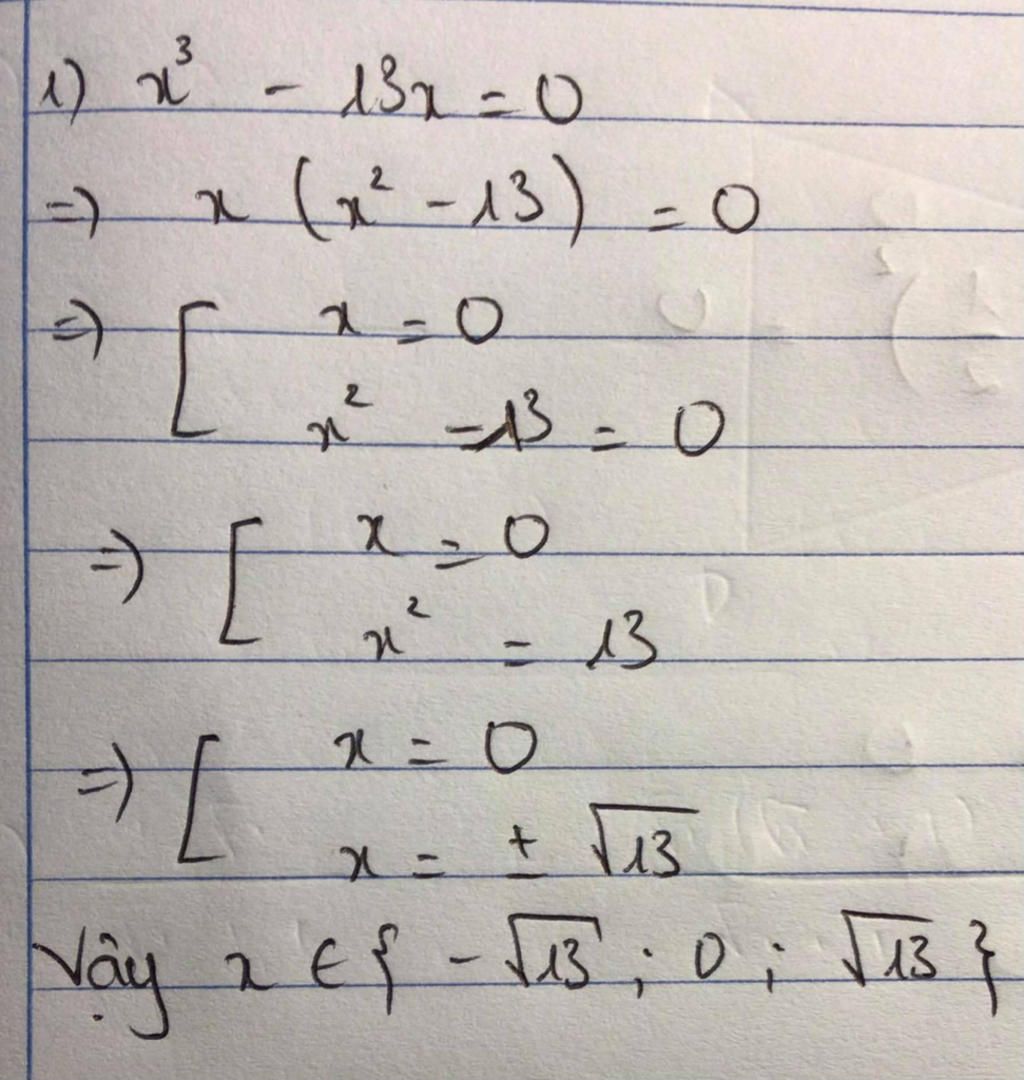 1) x³ - 13x = 0
=> x (x² - 13) = 0
=> [ x = 0
x² - 13 = 0
=> [ x = 0
x² = 13
=> [ x = 0
x = ± √13
Vậy x ∈ { -√13 ; 0 ; √13 }